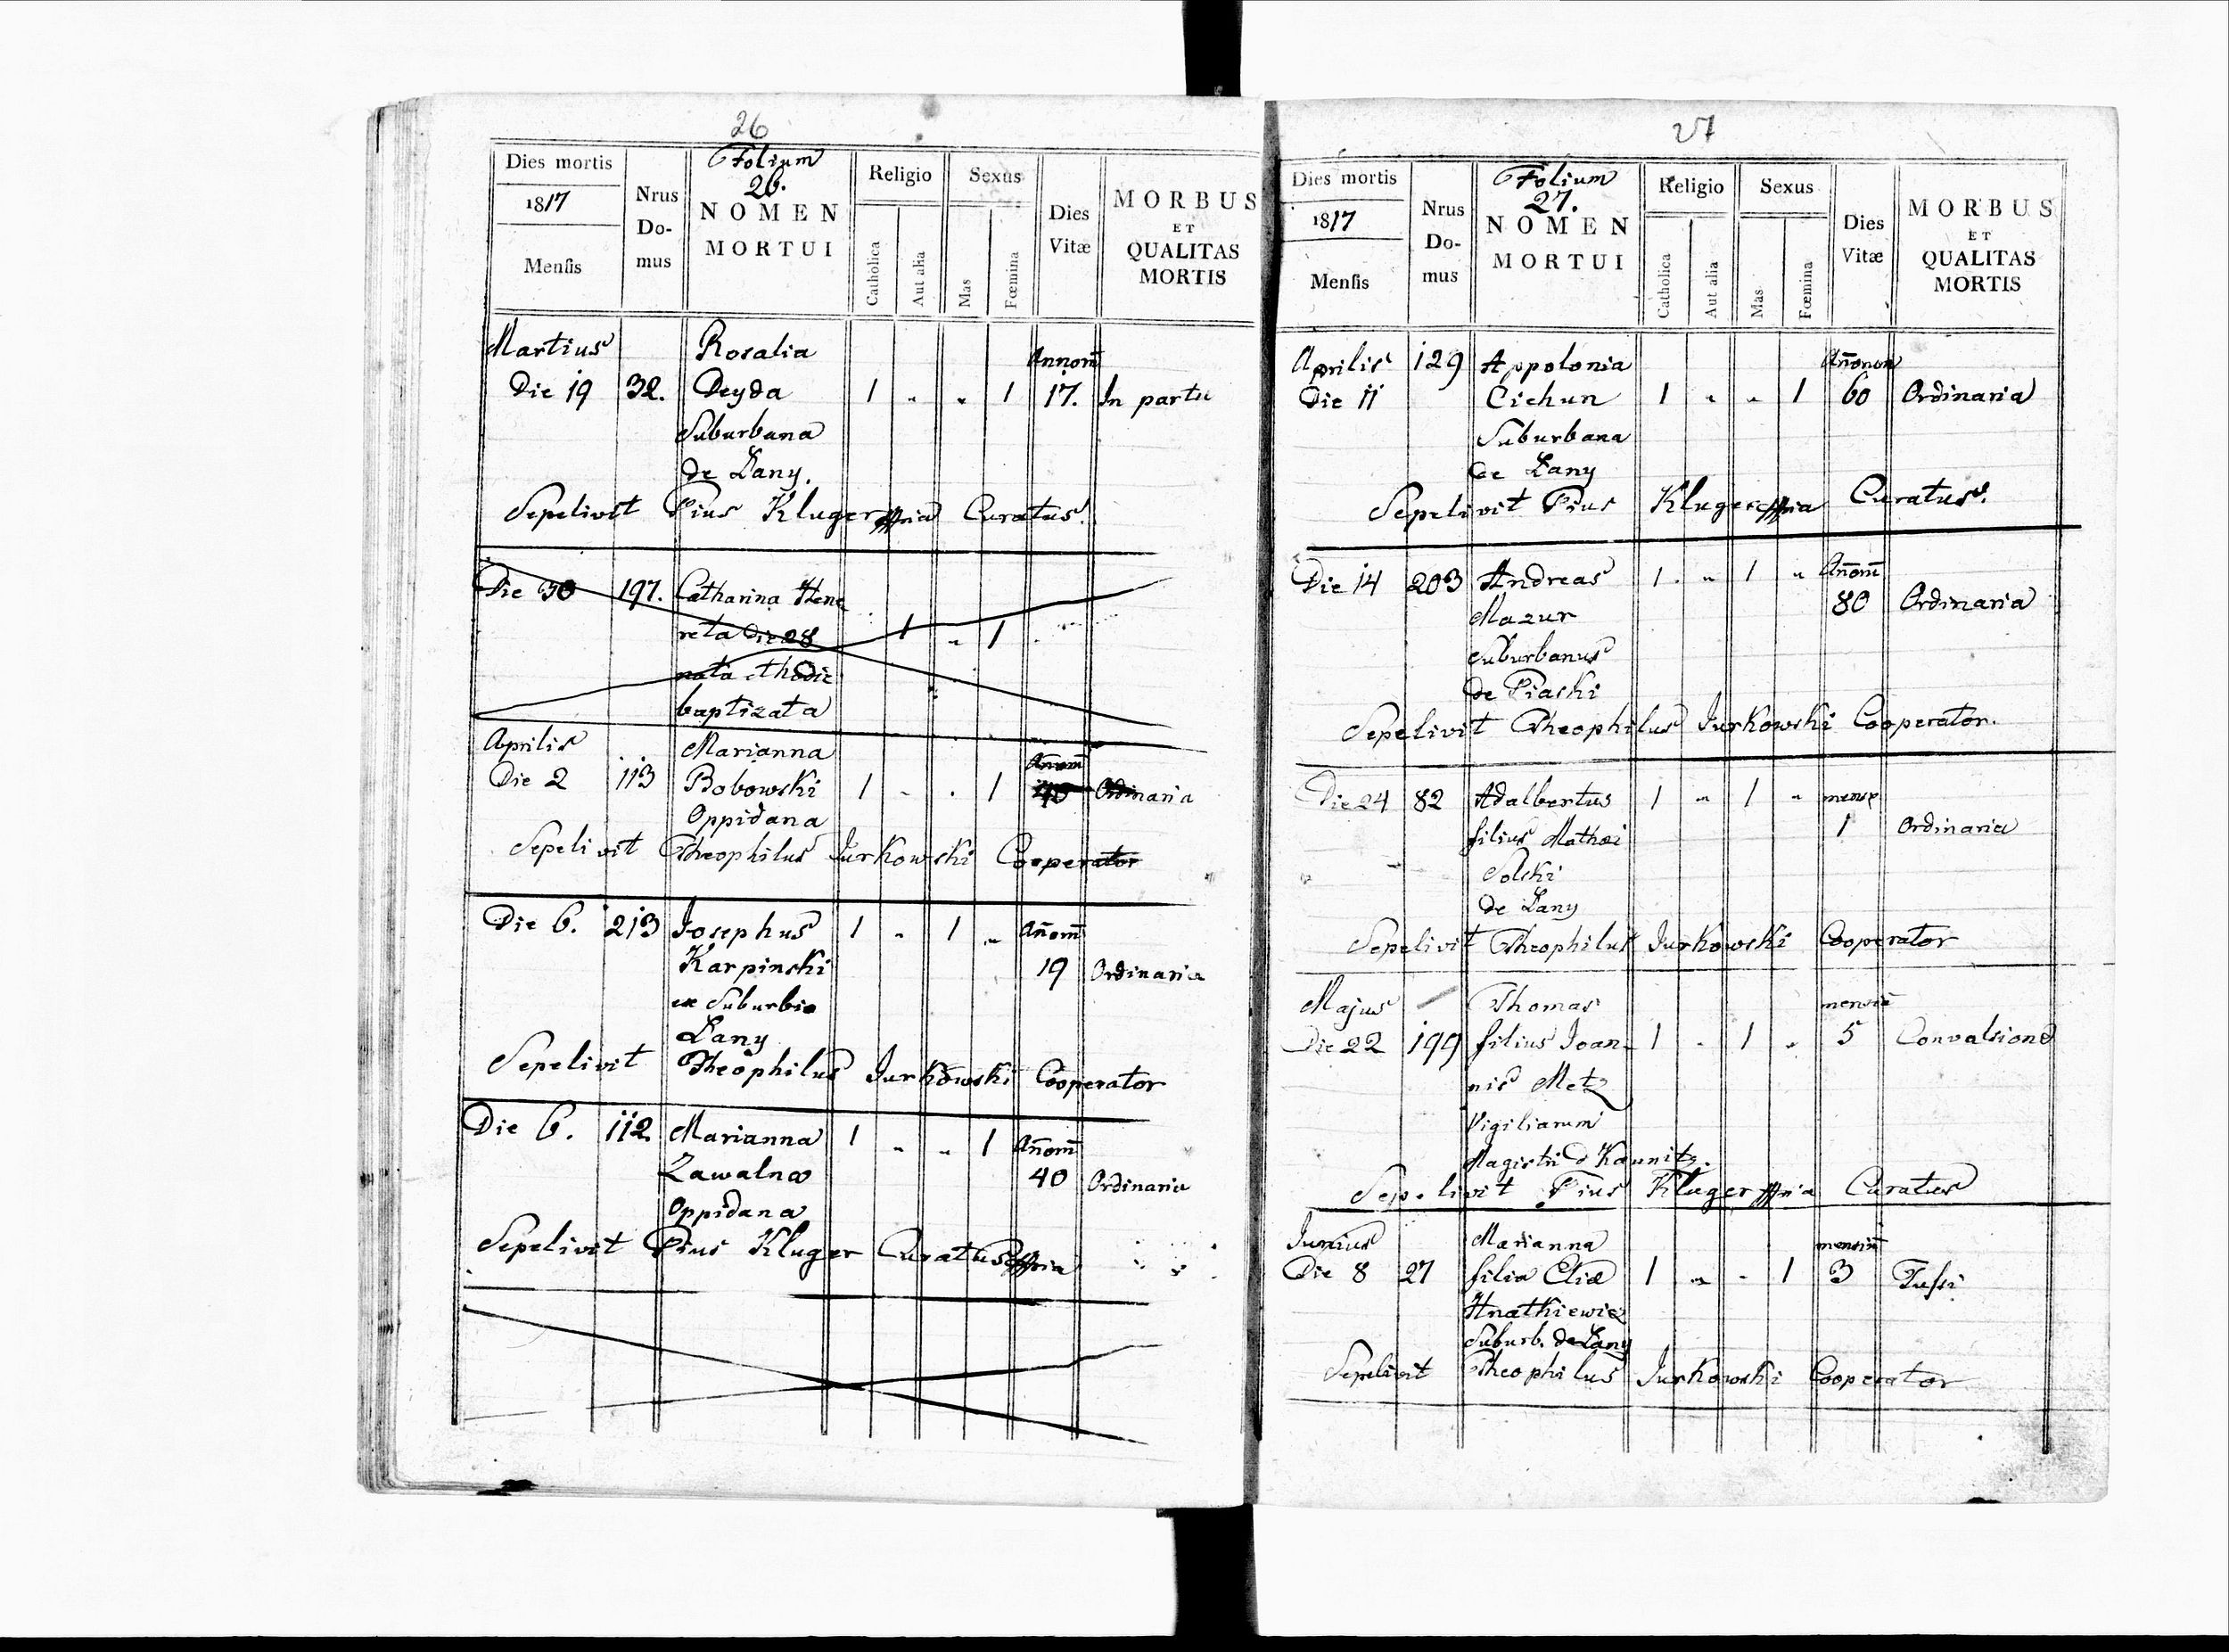 26
Dies mortis
1817
Mensis
Nrus Do- mus
Folium
26.
NOMEN
MORTUI
Religio
Catholica
Aut alia
Sexus
Mas
Fœmina
Dies
Vitæ
MORBUS
ET
QUALITAS
MORTIS
Martius Rosalia Annorū
Die 19 32. Deyda 1 " " 1 17. In partu
Suburbana
de Łany.
Sepelivit Pius Kluger mpria Curatus.
Die 30 197. Catharina Hene
reta Die 28 1 " 1
nata et hodie
baptizata
Aprilis Marianna Añorū
Die 2 113 Bobowski 1 - . 1 40 Ordinaria
Oppidana
Sepelivit Theophilus Jurkowski Cooperator
Die 6. 213 Josephus 1 " 1 " Añorū
Karpinski 19 Ordinaria
ex Suburbio
Łany
Sepelivit Theophilus Jurkowski Cooperator
Die 6. 112. Marianna 1 " " 1 Añorū
Zawalna 40 Ordinaria
Oppidana
Sepelivit Pius Kluger Curatus mpria
27
Dies mortis
1817
Mensis
Nrus Do- mus
Folium
27.
NOMEN
MORTUI
Religio
Catholica
Aut alia
Sexus
Mas
Fœmina
Dies
Vitæ
MORBUS
ET
QUALITAS
MORTIS
Aprilis 129 Appolonia Añorum
Die 11 Cichun 1 " " 1 60 Ordinaria
Suburbana
de Łany
Sepelivit Pius Kluger mpria Curatus.
Die 14 203 Andreas 1. " 1 " Añorū
Mazur 80 Ordinaria
Suburbanus
de Piaski
Sepelivit Theophilus Jurkowski Cooperator.
Die 24 82 Adalbertus 1 " 1 " mense
filius Mathæi 1 Ordinaria
Solski
de Łany
Sepelivit Theophilus Jurkowski Cooperator
Majus Thomas mensiū
Die 22 199 filius Joan- 1 . 1 " 5 Convulsione
nis Metz
Vigiliarum
Magistri d Kaunitz.
Sepelivit Pius Kluger mpria Curatus
Junius Marianna mensiū
Die 8 27 filia Eliæ 1 " - 1 3 Tussi
Hnatkiewicz
Suburb. de Łany
Sepelivit Theophilus Jurkowski Cooperator